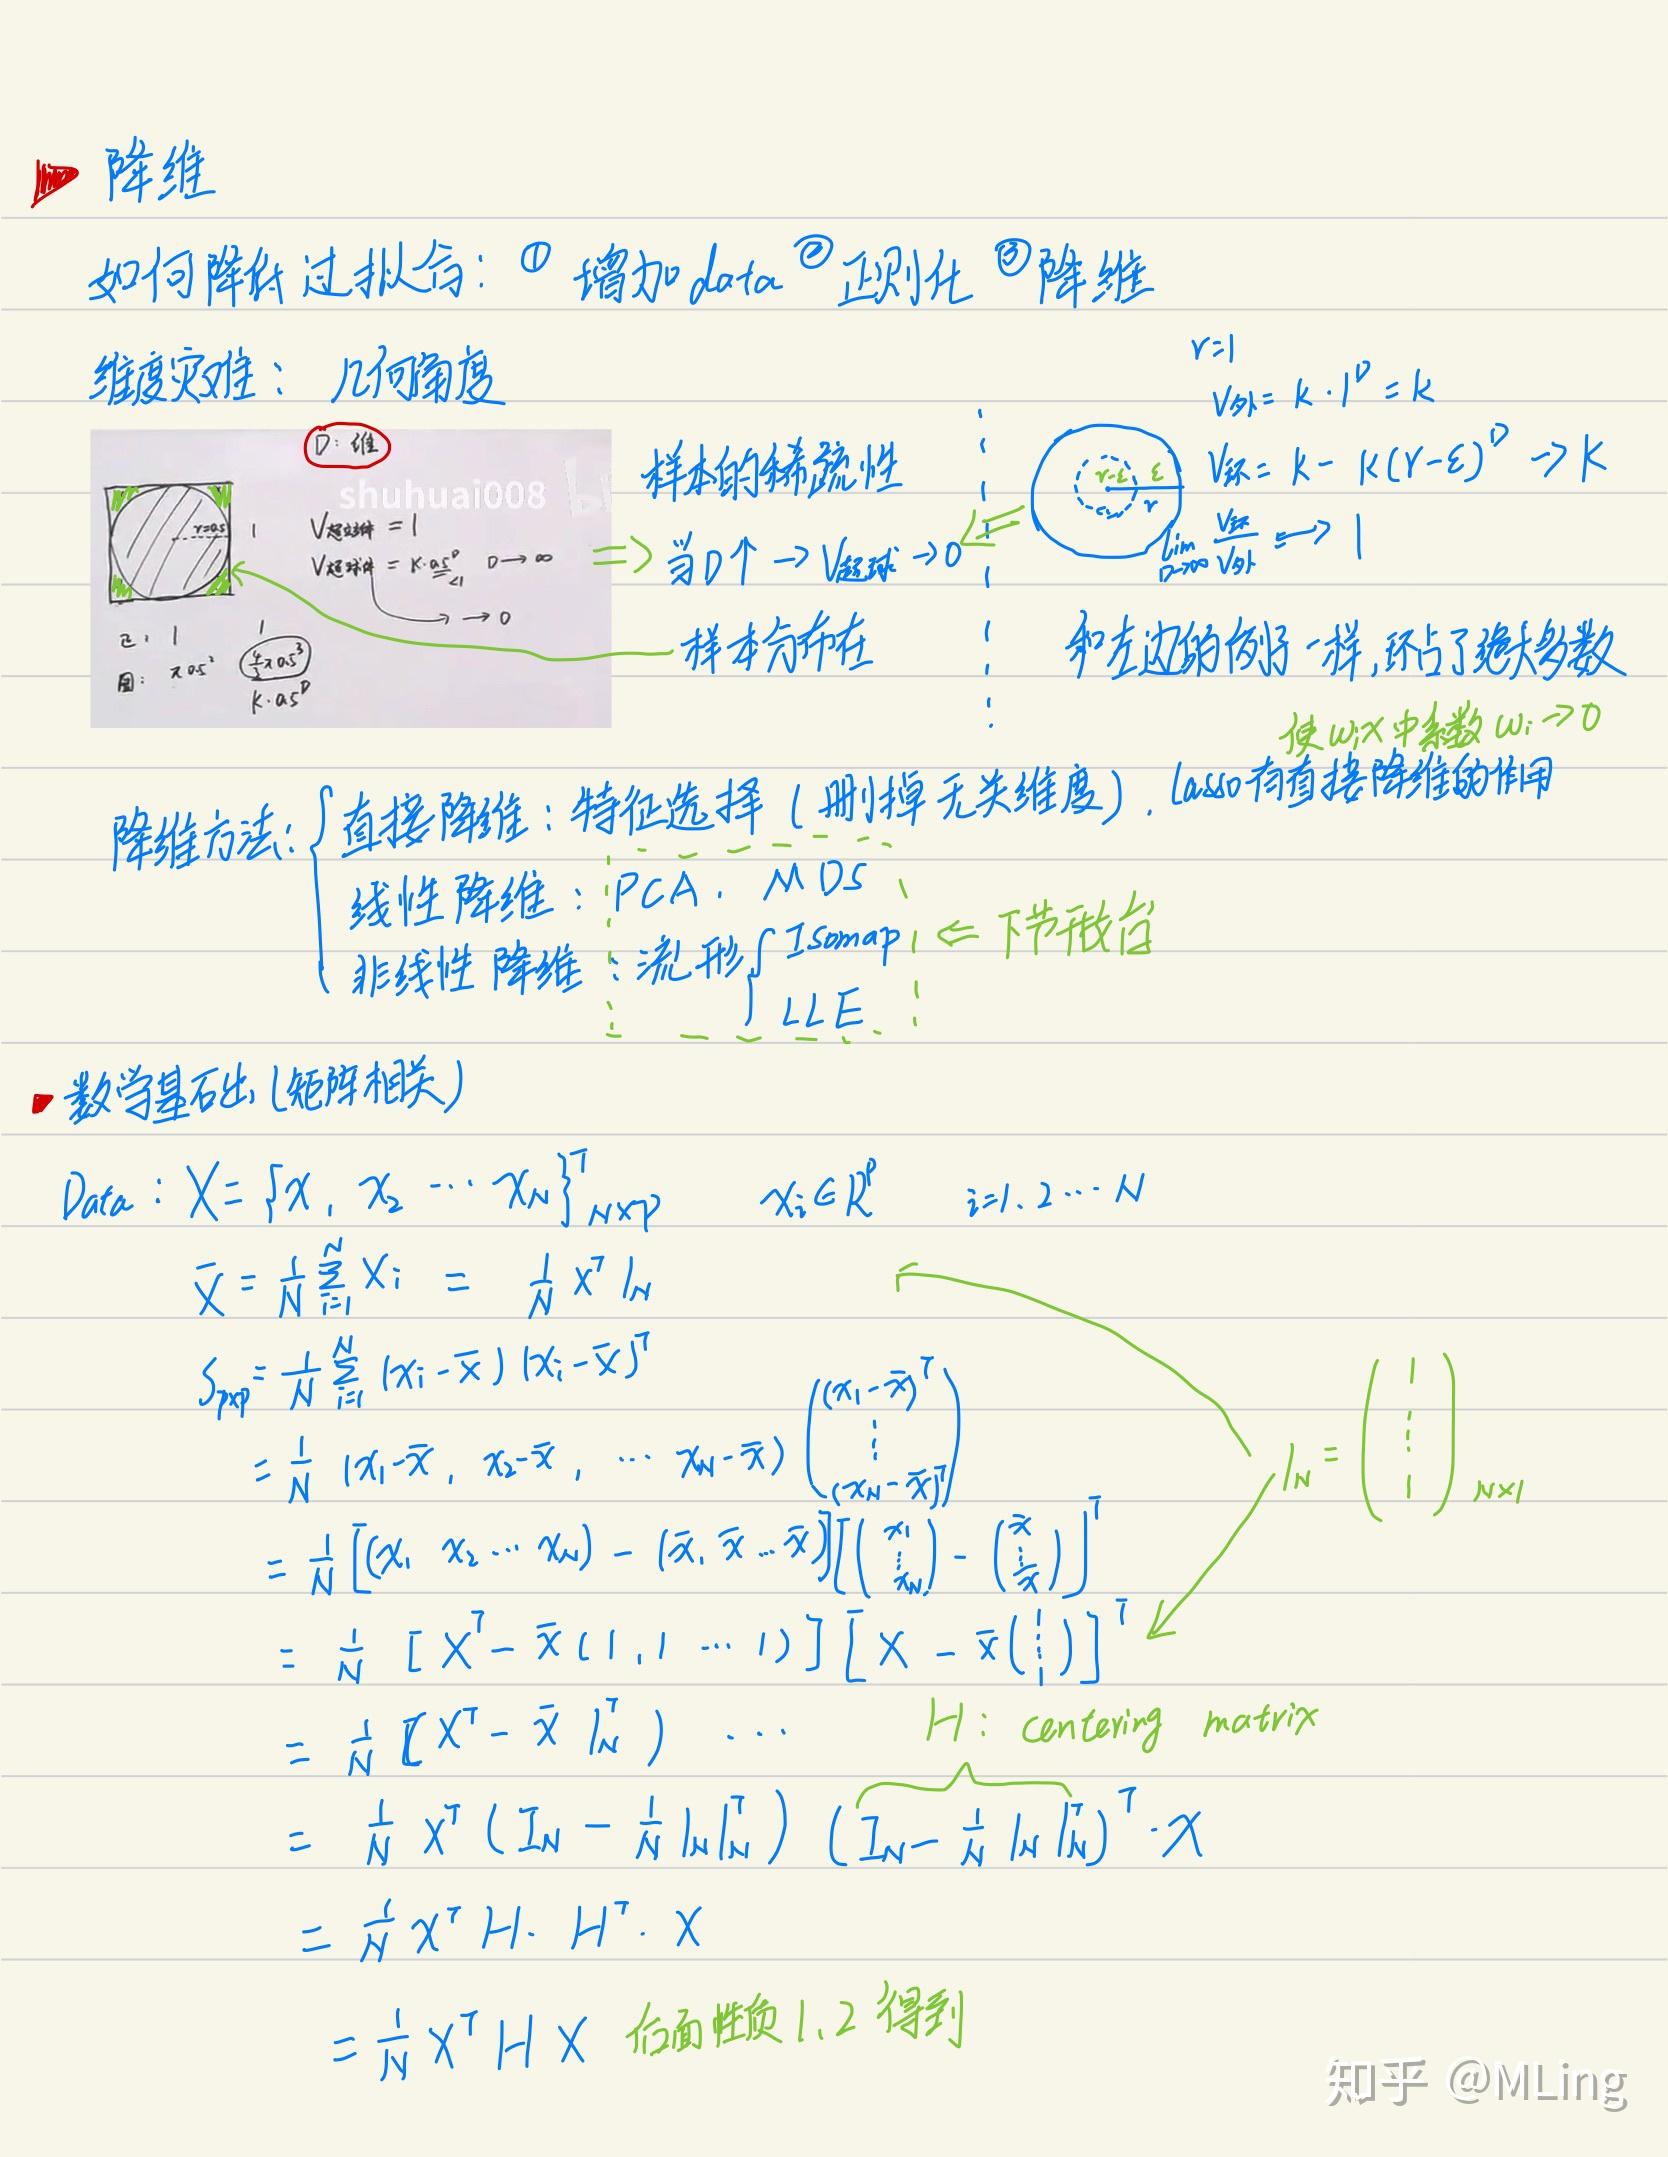 降维
如何降低过拟合: ① 增加data ② 正则化 ③ 降维
维度灾难: 几何角度
D: 维
shuhuai008
r=0.5
1
V超立方体 = 1
V超球体 = K·0.5^D D→∞
<1
→0
正: 1 1
圆: π0.5² 4/3π0.5³
K·0.5^D
样本的稀疏性
⇒ 当D↑ → V超球 → 0
样本分布在
r=1
V外 = K·1^D = K
V环 = K - K(r-ε)^D → K
r-ε ε
r
lim D→∞ V环/V外 ⇒ 1
和左边的例子一样,环占了绝大多数
使wix中系数wi→0
降维方法: { 直接降维: 特征选择 (删掉无关维度). lasso有直接降维的作用
线性降维: PCA. MDS
非线性降维: 流形 { Isomap
LLE
⇐ 下节开始
数学基础 (矩阵相关)
Data: X = {x, x₂ ⋯ x_N}^T_{N×p} x_i∈R^p i=1.2⋯N
X̄ = 1/N Σ_{i=1}^N X_i = 1/N X^T 1_N
S_{p×p} = 1/N Σ_{i=1}^N (x_i - x̄)(x_i - x̄)^T
= 1/N (x₁-x̄, x₂-x̄, ⋯ x_N-x̄) ((x₁-x̄)^T ⋮ (x_N-x̄)^T)
1_N = (1 ⋮ 1)_{N×1}
= 1/N [(x₁ x₂⋯x_N) - (x̄, x̄⋯x̄)][(x₁ ⋮ x_N) - (x̄ ⋮ x̄)]^T
= 1/N [X^T - x̄(1,1 ⋯ 1)][X - x̄(1 ⋮ 1)]^T
= 1/N [X^T - x̄ 1_N^T) ⋯
H: centering matrix
= 1/N X^T (I_N - 1/N 1_N 1_N^T) (I_N - 1/N 1_N 1_N^T)^T · X
= 1/N X^T H· H^T · X
= 1/N X^T H X 后面性质1、2得到
知乎 @MLing